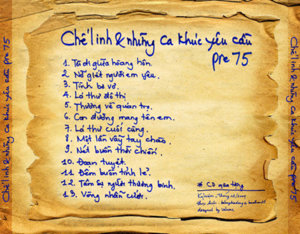 Chế Linh & những ca khúc yêu cầu
pre 75
1. Ta đi giữa hoàng hôn.
2. Nỗi giết người em yêu.
3. Tình bơ vơ.
4. Lá thư đô thị
5. Thương về quán trọ.
6. Con đường mang tên em.
7. Lá thư cuối cùng.
8. Một lần vẫy tay chào.
9. Nỗi buồn thời chiến.
10. Đoạn tuyệt.
11. Đêm buồn tỉnh lẻ.
12. Tâm sự người thương binh.
13. Vòng nhẫn cưới.
* CD
designed by
Chế Linh & những ca khúc yêu cầu pre 75
Chế Linh & những ca khúc yêu cầu pre 75